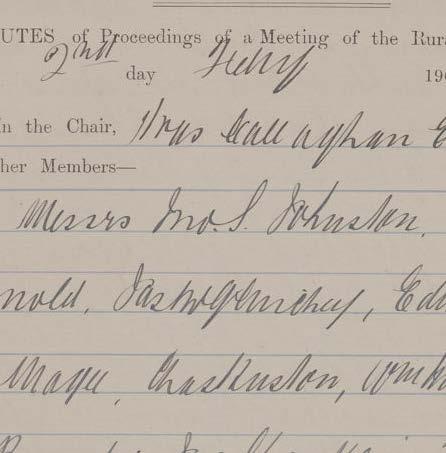 UTES of Proceedings of a Meeting of the Rura
2nd day Feby 190
in the Chair, Thos Callaghan E
her Members—
Messrs Jno. S. Johnston,
nold, Edw
Magee, Chas Huston, Wm